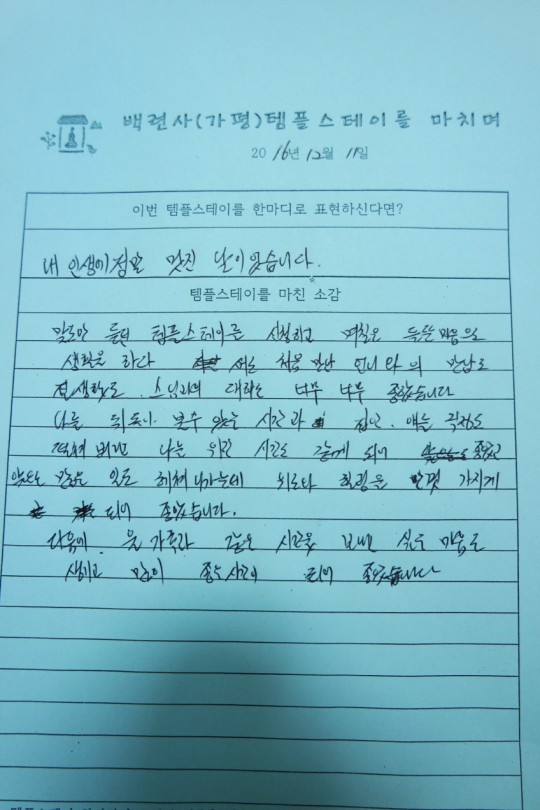 백련사(가평)템플스테이를 마치며
2016년 12월 11일
이번 템플스테이를 한마디로 표현하신다면?
내 인생에 정말 멋진 날이었습니다.
템플스테이를 마친 소감
말로만 듣던 템플스테이를 신청하고 며칠은 들뜬 마음으로
생활을 하다 처음 만난 언니와의 만남도
스님과의 대화도 너무 너무 좋았습니다
나를 뒤돌아 볼수 있는 시간과 집안, 애들 걱정도
떨쳐 버리고 나를 위한 시간도 갖게 되어 좋았고
앞으로 일도 헤쳐나가는데 위로와 희망을 가지게
되어 좋았습니다.
다음에 온 가족과 같은 시간을 보내고 싶은 마음도
생기고 많이 좋은 시간이 되어 좋았습니다